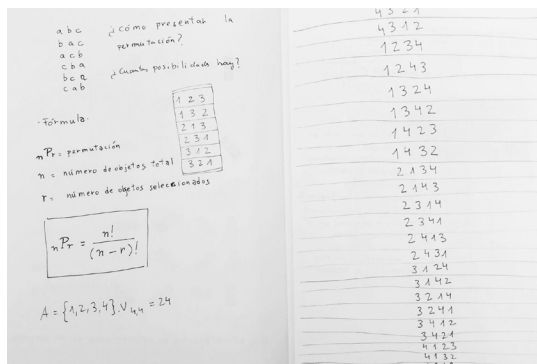 a b c ¿Cómo presentar la
b a c permutación?
a c b
c b a
b c a ¿Cuantas posibilidads hay?
c a b
·Fórmula·
1 2 3
1 3 2
2 1 3
2 3 1
3 1 2
3 2 1
nPr = permutación
n = número de objetos total
r = número de objetos seleccionados
nPr = n! / (n - r)!
A = {1,2,3,4}. V4,4 = 24
4 3 2 1
4 3 1 2
1 2 3 4
1 2 4 3
1 3 2 4
1 3 4 2
1 4 2 3
1 4 3 2
2 1 3 4
2 1 4 3
2 3 1 4
2 3 4 1
2 4 1 3
2 4 3 1
3 1 2 4
3 1 4 2
3 2 1 4
3 2 4 1
3 4 1 2
3 4 2 1
4 1 2 3
4 1 3 2